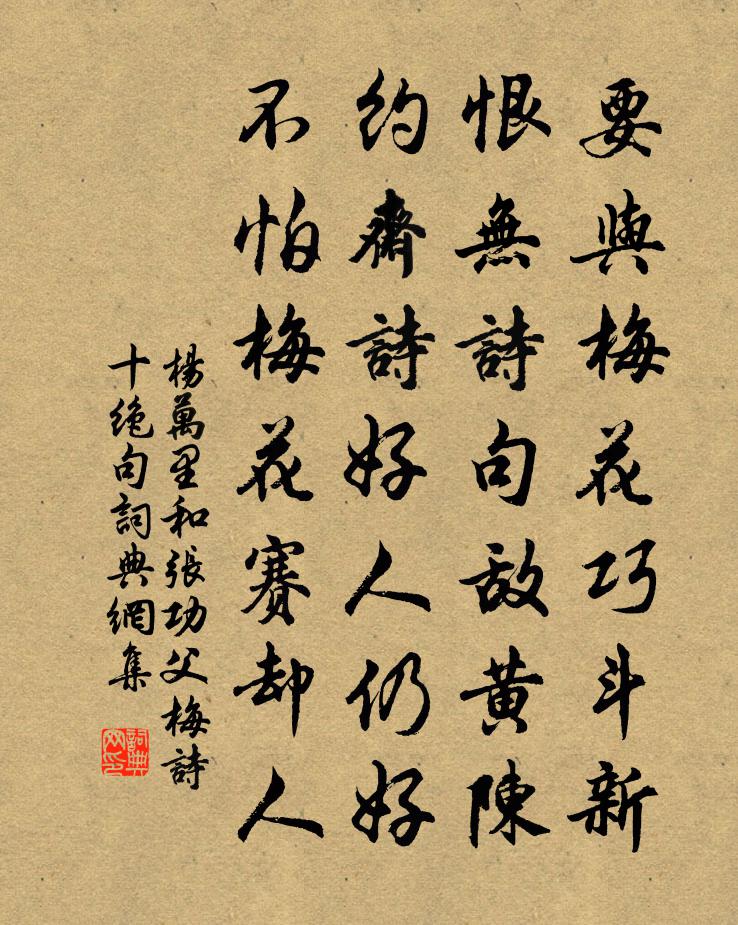 要與梅花巧斗新
恨無詩句敌黄陳
約齋詩好人仍好
不怕梅花賽却人
楊萬里和張功父梅詩
十絶句詞典網集
詞典
网印